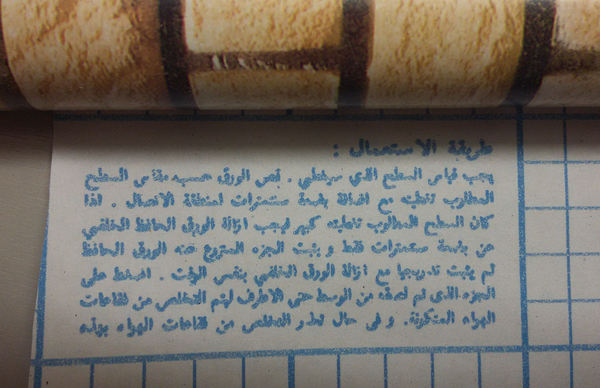 طريقة الاستعمال :
يجب قياس السطح الذي سيغطى . قص الورق حسب مقاس السطح
المطلوب تغطيته مع اضافة بضعة سنتمترات لمنطقة الاتصال . اذا
كان السطح المطلوب تغطيته كبير فيجب ازالة الورق الحافظ الخلفي
عن بضعة سنتمترات فقط و يثبت الجزء المنزوع عنه الورق الحافظ
ثم يثبت تدريجيا مع ازالة الورق الخلفي بنفس الوقت . اضغط على
الجزء الذى تم لصقه من الوسط حتى الاطرف ليتم التخلص من فقاعات
الهواء المتكونة. و فى حال تعذر التخلص من فقاعات الهواء بهذه